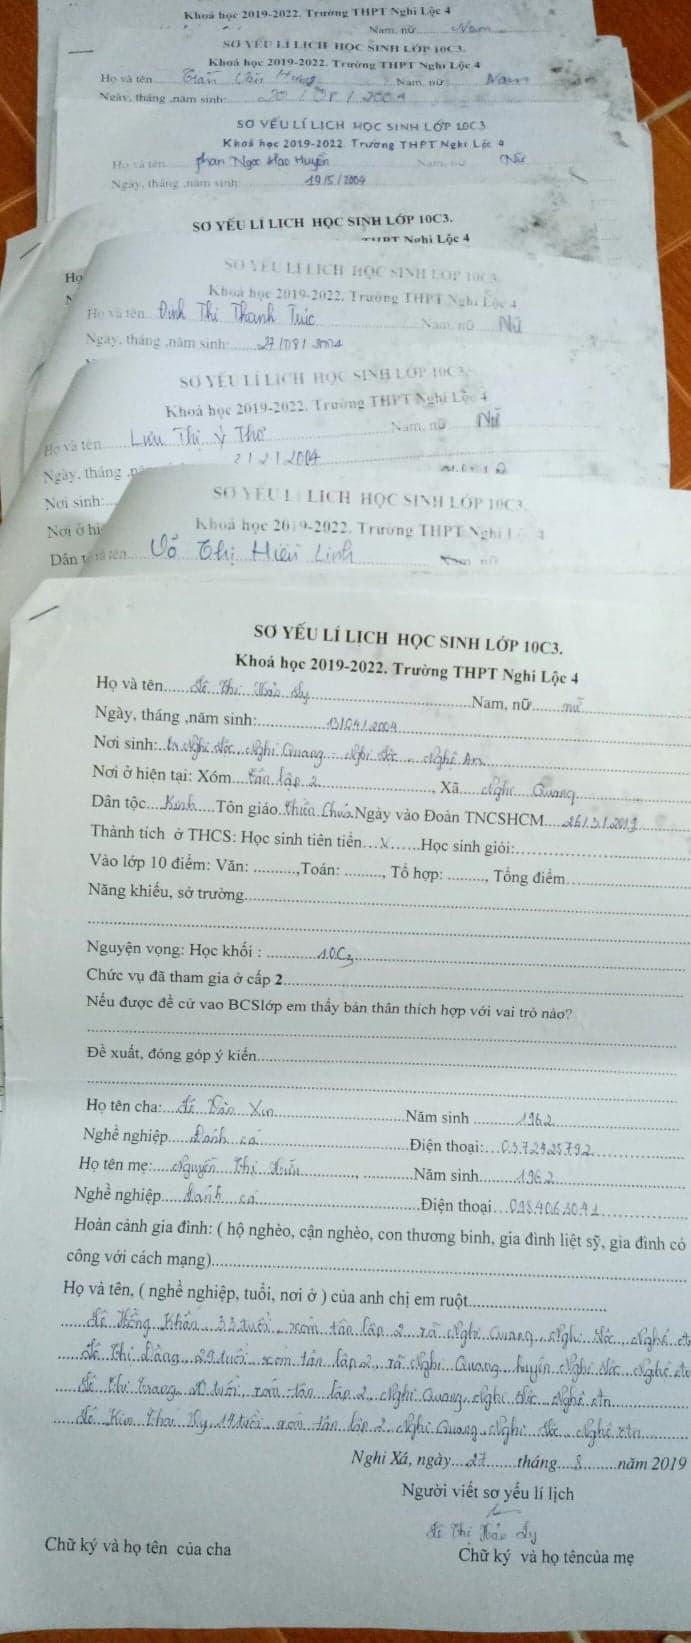 Khoá học 2019-2022. Trường THPT Nghi Lộc 4
Nam, nữ Nam
SƠ YẾU LÍ LỊCH HỌC SINH LỚP 10C3.
Khoá học 2019-2022. Trường THPT Nghi Lộc 4
Họ và tên Trần Văn Nam, nữ Nam
Ngày, tháng ,năm sinh: 20/08/2004
SƠ YẾU LÍ LỊCH HỌC SINH LỚP 10C3
Khoá học 2019-2022. Trường THPT Nghi Lộc 4
Họ và tên Phan Ngọc Hạo Huyền Nam, nữ Nữ
Ngày, tháng ,năm sinh: 19/5/2004
SƠ YẾU LÍ LỊCH HỌC SINH LỚP 10C3.
THPT Nghi Lộc 4
Họ
SƠ YẾU LÍ LỊCH HỌC SINH LỚP 10C3.
Khoá học 2019-2022. Trường THPT Nghi Lộc 4
Họ và tên Đinh Thị Thanh Trúc Nam, nữ Nữ
Ngày, tháng ,năm sinh: 27/08/2004
SƠ YẾU LÍ LỊCH HỌC SINH LỚP 10C3.
Khoá học 2019-2022. Trường THPT Nghi Lộc 4
Họ và tên Lưu Thị Ý Thơ Nam, nữ Nữ
Ngày, tháng 2/2/2004
Nơi sinh:
SƠ YẾU LÍ LỊCH HỌC SINH LỚP 10C3.
Nơi ở hi
Khoá học 2019-2022. Trường THPT Nghi Lộc 4
Dân t
tên Võ Thị Hiền Linh nữ
SƠ YẾU LÍ LỊCH HỌC SINH LỚP 10C3.
Khoá học 2019-2022. Trường THPT Nghi Lộc 4
Họ và tên Lê Thị Thảo Ly Nam, nữ nữ
Ngày, tháng ,năm sinh: 13/04/2004
Nơi sinh: Nghi Lộc, Nghi Quang - Nghi Lộc - Nghệ An
Nơi ở hiện tại: Xóm Tân lập 2, Xã Nghi Quang
Dân tộc Kinh Tôn giáo Thiên Chúa Ngày vào Đoàn TNCSHCM 26/3/2019
Thành tích ở THCS: Học sinh tiên tiến X Học sinh giỏi:
Vào lớp 10 điểm: Văn: ,Toán: , Tổ hợp: , Tổng điểm
Năng khiếu, sở trường
Nguyện vọng: Học khối : 10C3
Chức vụ đã tham gia ở cấp 2
Nếu được đề cử vao BCSlớp em thấy bản thân thích hợp với vai trò nào?
Đề xuất, đóng góp ý kiến
Họ tên cha: Lê Văn Xin Năm sinh 1962
Nghề nghiệp Đánh cá Điện thoại: 0372425792
Họ tên mẹ: Nguyễn Thị Năm sinh 1962
Nghề nghiệp Đánh cá Điện thoại 0984063041
Hoàn cảnh gia đình: ( hộ nghèo, cận nghèo, con thương binh, gia đình liệt sỹ, gia đình có
công với cách mạng)
Họ và tên, ( nghề nghiệp, tuổi, nơi ở ) của anh chị em ruột
Lê Hồng Khân, 33 tuổi, xóm tân lập 2 xã Nghi Quang, Nghi Lộc, Nghệ An
Lê Thị Đằng, 29 tuổi, xóm tân lập 2, xã Nghi Quang huyện Nghi Lộc, Nghệ An
Lê Thị Trang, 20 tuổi, xóm tân lập 2, Nghi Quang, Nghi Lộc, Nghệ An
Lê Kim Thái Hy, 14 tuổi, xóm tân lập 2, Nghi Quang, Nghi Lộc, Nghệ An
Nghi Xá, ngày 27 tháng 8 năm 2019
Người viết sơ yếu lí lịch
Lê Thị Thảo Ly
Chữ ký và họ tên của cha
Chữ ký và họ têncủa mẹ